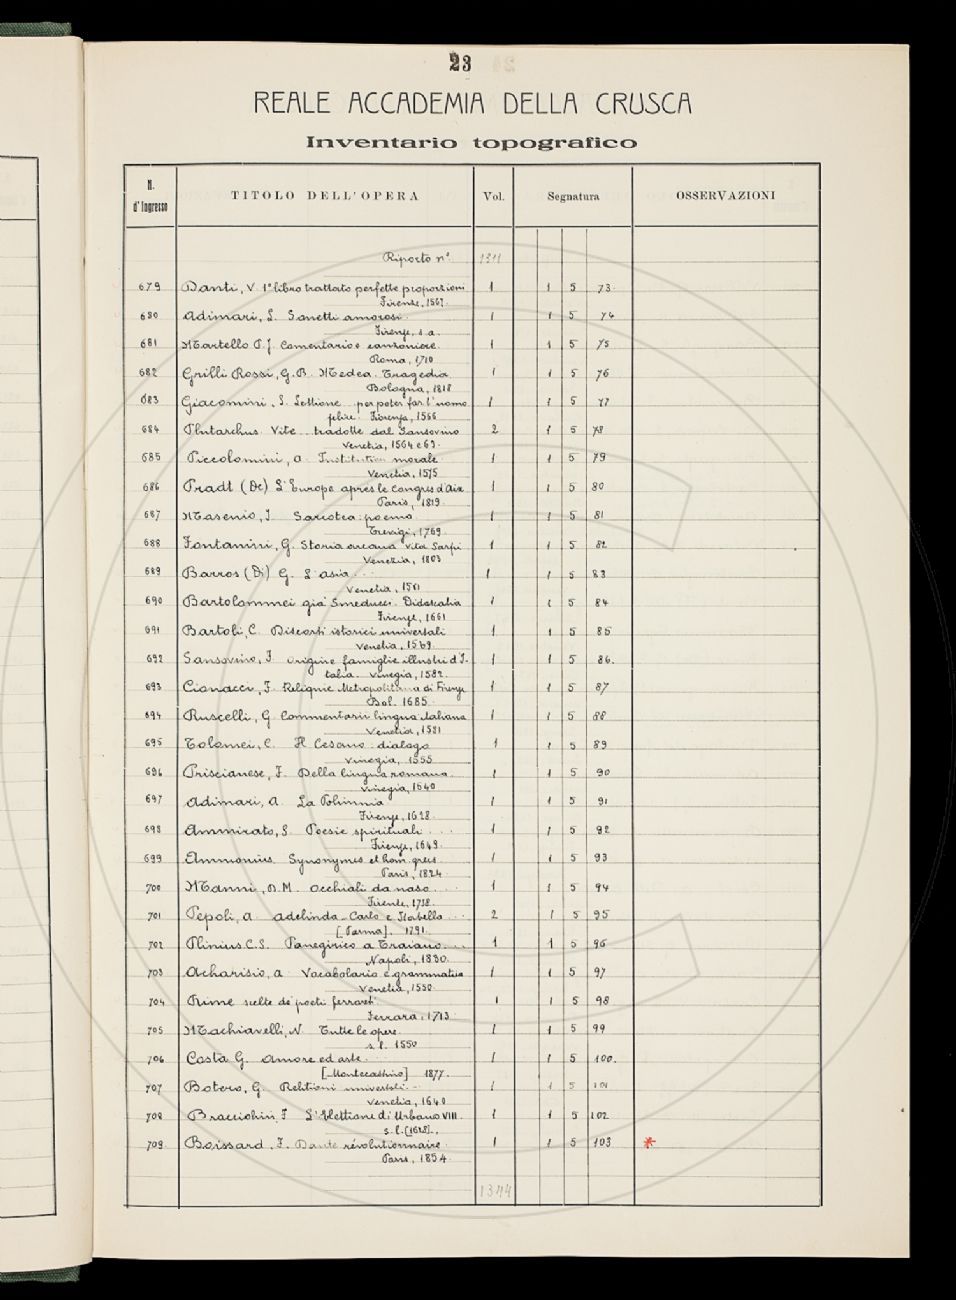 23
REALE ACCADEMIA DELLA CRUSCA
Inventario topografico
N. d'Ingresso TITOLO DELL'OPERA Vol. Segnatura OSSERVAZIONI
Riporto n°. 1311
679 Danti, V. 1° libro trattato perfette proporzioni 1 1 5 73.
Firenze, 1567.
680 Adimari, L. Sonetti amorosi. 1 1 5 74
Firenze, s.a.
681 Martello P. J. Comentario e canzoniere. 1 1 5 75
Roma, 1710
682 Grilli Rossi, G. B. Medea. Tragedia 1 1 5 76
Bologna, 1818
683 Giacomini, L. Lettione per poter far l'uomo 1 1 5 77
felice. Fiorenza, 1566
684 Plutarchus. Vite tradotte dal Sansovino 2 1 5 78
Venetia, 1564 e 63.
685 Piccolomini, A. Institution morale 1 1 5 79
Venetia, 1575
686 Pradt (De) L'Europe après le Congrès d'Aix 1 1 5 80
Paris, 1819.
687 Masenio, J. Sarcotea: poema 1 1 5 81
Trevigi, 1769.
688 Fontanini, G. Storia arcana vita Sarpi 1 1 5 82
Venezia, 1803
689 Barros (Di) G. L'Asia... 1 1 5 83
Venetia, 1561
690 Bartolommei già Smeducci. Didascalia 1 1 5 84
Firenze, 1661
691 Bartoli, C. Discorsi istorici universali 1 1 5 85
Venetia, 1569.
692 Sansovino, F. Origine famiglie illustri d'I- 1 1 5 86.
talia. Vinegia, 1582.
693 Cionacci, F. Reliquie Metropolitana di Firenze 1 1 5 87
Bol. 1685.
694 Ruscelli, G. Commentarii lingua italiana 1 1 5 88
Venetia, 1581
695 Tolomei, C. Il Cesano: dialogo 1 1 5 89
Vinegia, 1555
696 Priscianese, F. Della lingua romana. 1 1 5 90
Vinegia, 1540
697 Adimari, A. La Polinnia 1 1 5 91
Firenze, 1628.
698 Ammirato, S. Poesie spirituali... 1 1 5 92
Firenze, 1643.
699 Ammonius. Synonymes et hom. grecs 1 1 5 93
Paris, 1824.
700 Manni, D. M. Occhiali da naso... 1 1 5 94
Firenze, 1738.
701 Pepoli, A. Adelinda - Carlo e Isabella... 2 1 5 95
[Parma]. 1791.
702 Plinius C. S. Panegirico a Traiano... 1 1 5 96
Napoli, 1830.
703 Acharisio, A. Vocabolario e grammatica 1 1 5 97
Venetia, 1550.
704 Rime scelte de' poeti ferraresi. 1 1 5 98
Ferrara, 1713.
705 Machiavelli, N. Tutte le opere. 1 1 5 99
s. l. 1550
706 Costa G. Amore ed arte. 1 1 5 100.
[Montecassino] 1877.
707 Botero, G. Relationi universali... 1 1 5 101
Venetia, 1640
708 Bracciolini, F. L'Elettione di Urbano VIII. 1 1 5 102
s. l. [1628].
709 Boissard, F. Dante révolutionnaire. 1 1 5 103 *
Paris, 1854.
1344